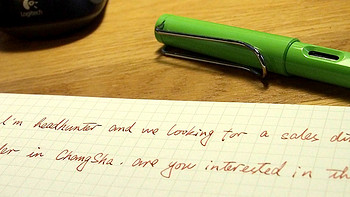 Logitech
I'm headhunter and we looking for a sales di
ler in ChangSha. are you interested in th